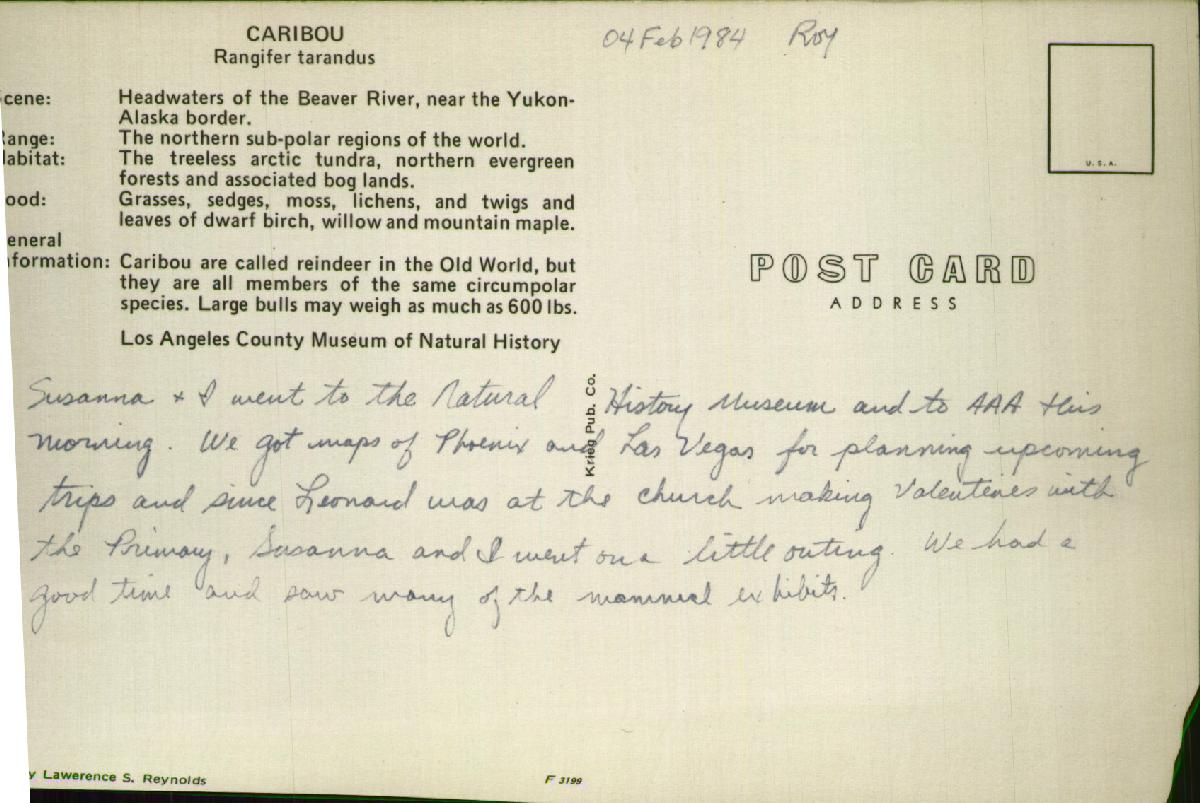 CARIBOU
Rangifer tarandus
04 Feb 1984 Roy
cene: Headwaters of the Beaver River, near the Yukon-
Alaska border.
ange: The northern sub-polar regions of the world.
abitat: The treeless arctic tundra, northern evergreen
forests and associated bog lands.
ood: Grasses, sedges, moss, lichens, and twigs and
leaves of dwarf birch, willow and mountain maple.
eneral
nformation: Caribou are called reindeer in the Old World, but
they are all members of the same circumpolar
species. Large bulls may weigh as much as 600 lbs.
Los Angeles County Museum of Natural History
U.S.A.
POST CARD
ADDRESS
Krieg Pub. Co.
Susanna + I went to the Natural History Museum and to AAA this
morning. We got maps of Phoenix and Las Vegas for planning upcoming
trips and since Leonard was at the church making Valentines with
the Primary, Susanna and I went on a little outing. We had a
good time and saw many of the mammal exhibits.
y Lawerence S. Reynolds
F 3199